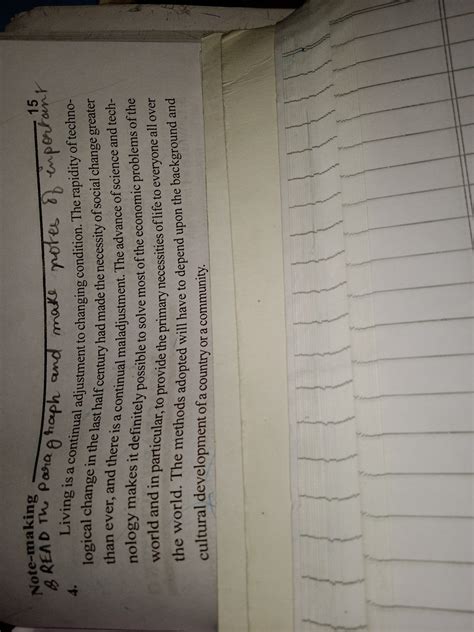 Note-making 15
B READ The Paragraph and make notes of important
4. Living is a continual adjustment to changing condition. The rapidity of techno-
logical change in the last half century had made the necessity of social change greater
than ever, and there is a continual maladjustment. The advance of science and tech-
nology makes it definitely possible to solve most of the economic problems of the
world and in particular, to provide the primary necessities of life to everyone all over
the world. The methods adopted will have to depend upon the background and
cultural development of a country or a community.